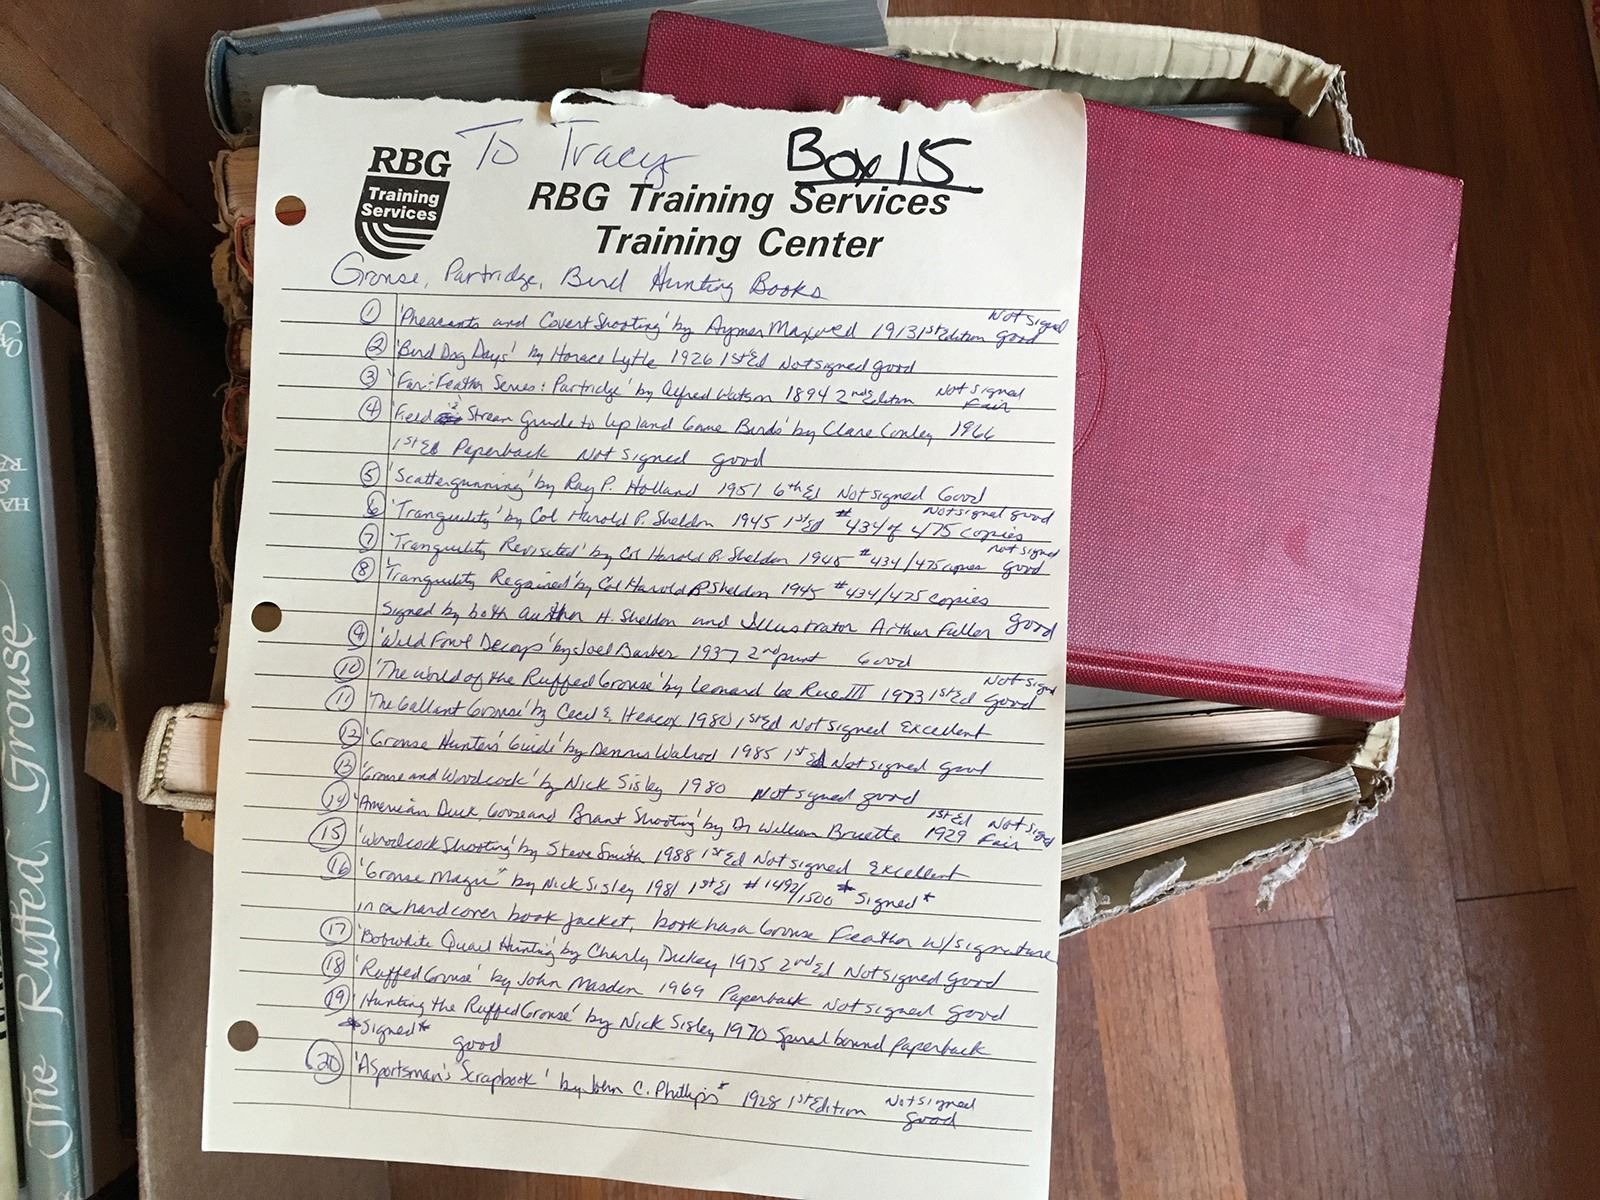 To Tracy
Box 15
RBG
Training
Services
RBG Training Services
Training Center
Grouse, Partridge, Bird Hunting Books
① 'Pheasants and Covert Shooting' by Aymer Maxwell 1913 1st Edition Not Signed Good
② 'Bird Dog Days' by Horace Lytle 1926 1st Ed Not signed good
③ 'Fur: Feather Series: Partridge' by Alfred Watson 1894 2nd Edition Not Signed Fair
④ 'Field & Stream Guide to Upland Game Birds' by Clare Conley 1966
1st Ed Paperback Not Signed good
⑤ 'Scattergunning' by Ray P. Holland 1951 6th Ed Not signed Good
⑥ 'Tranquility' by Col Harold P. Sheldon 1945 1st Ed #434 of 475 copies Not signed good
⑦ 'Tranquility Revisited' by Col Harold P. Sheldon 1945 #434/475 copies not signed Good
⑧ 'Tranquility Regained' by Col Harold P Sheldon 1945 #434/475 copies
signed by both author H. Sheldon and Illustrator Arthur Fuller good
⑨ 'Wild Fowl Decoys' by Joel Barber 1937 2nd print Good
⑩ 'The World of the Ruffed Grouse' by Leonard Lee Rue III 1973 1st Ed Not Signed Good
⑪ 'The Gallant Grouse' by Cecil E. Heacox 1980 1st Ed Not Signed Excellent
⑫ 'Grouse Hunters' Guide' by Dennis Walrod 1985 1st Ed Not Signed Good
⑬ 'Grouse and Woodcock' by Nick Sisley 1980 Not signed good
⑭ 'American Duck, Goose and Brant Shooting' by Dr William Bruette 1st Ed 1929 Not Signed Fair
⑮ 'Woodcock Shooting' by Steve Smith 1988 1st Ed Not signed Excellent
⑯ "Grouse Magic" by Nick Sisley 1981 1st Ed #1492/1500 *Signed*
in a hardcover book jacket, book has a Grouse Feather w/signature
⑰ 'Bobwhite Quail Hunting' by Charly Dickey 1975 2nd Ed Not Signed Good
⑱ 'Ruffed Grouse' by John Madson 1969 Paperback Not signed Good
⑲ 'Hunting the Ruffed Grouse' by Nick Sisley 1970 Spiral bound paperback
*Signed* good
⑳ 'A Sportsman's Scrapbook' by John C. Phillips* 1928 1st Edition Not signed good
The Ruffed Grouse